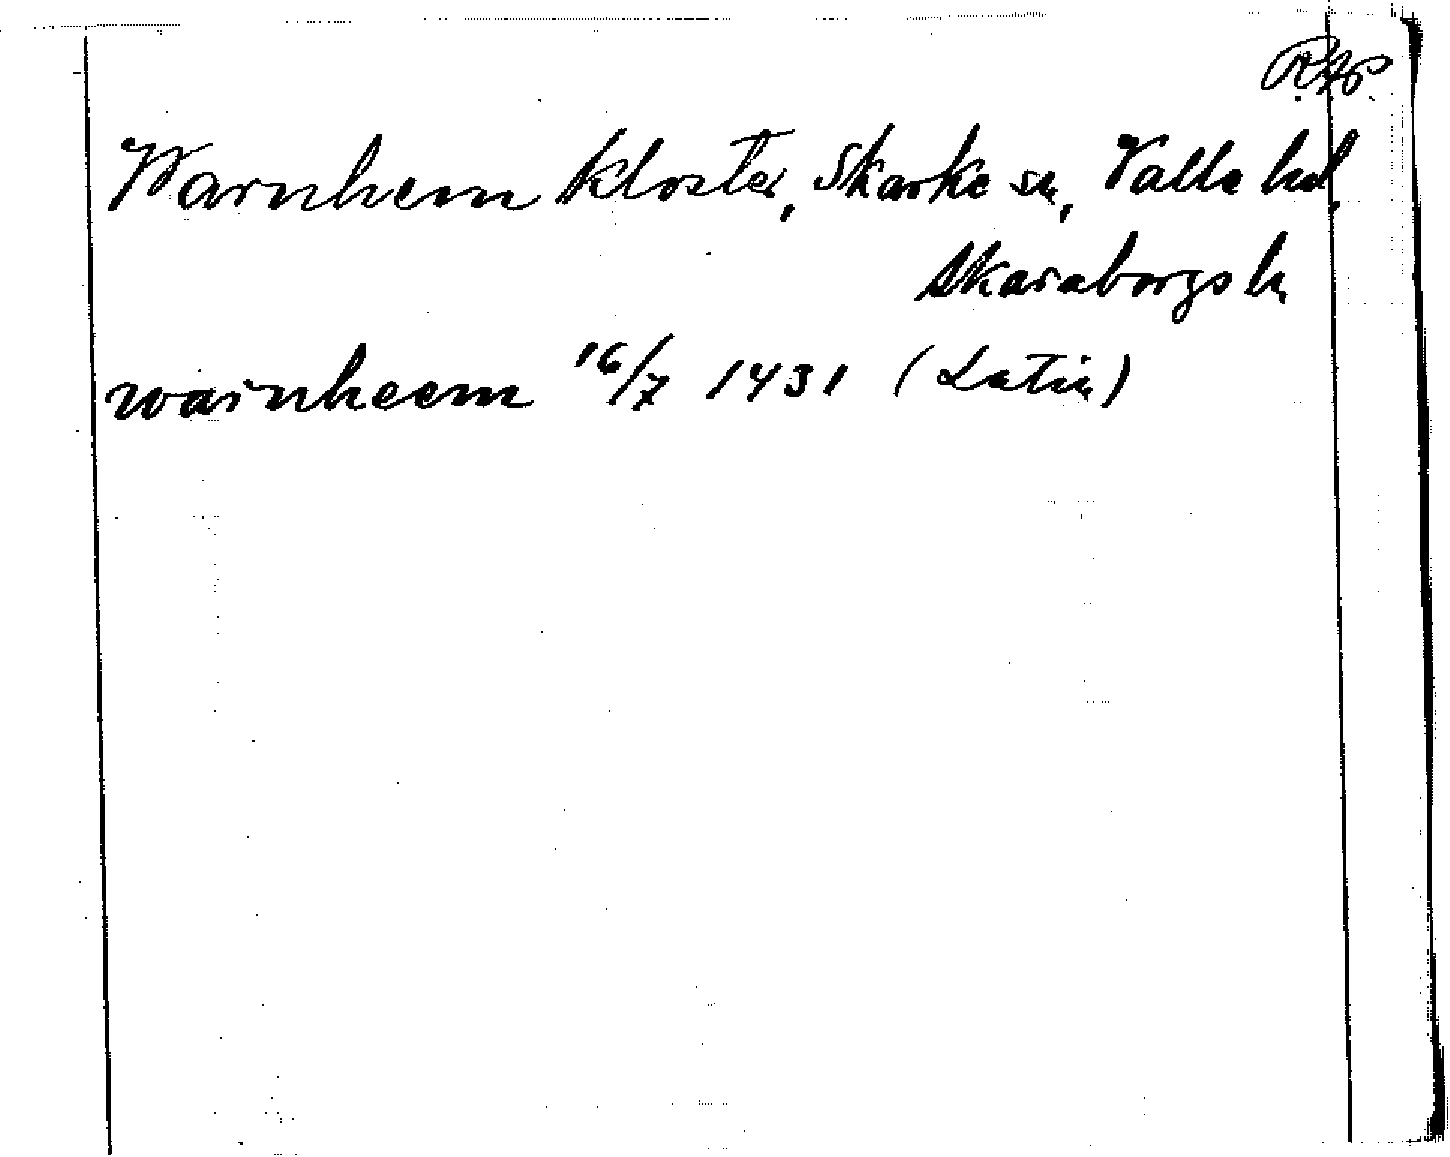 RAp
Warnhem kloster, Skarke sn, Valle hd,
Skaraborgs ln
warnheem 16/7 1431 (Latin)